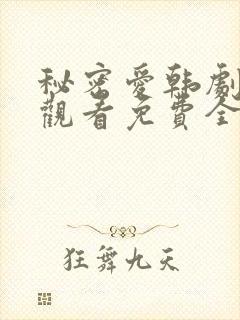 秘密愛韩劇
觀看免費全
狂舞九天